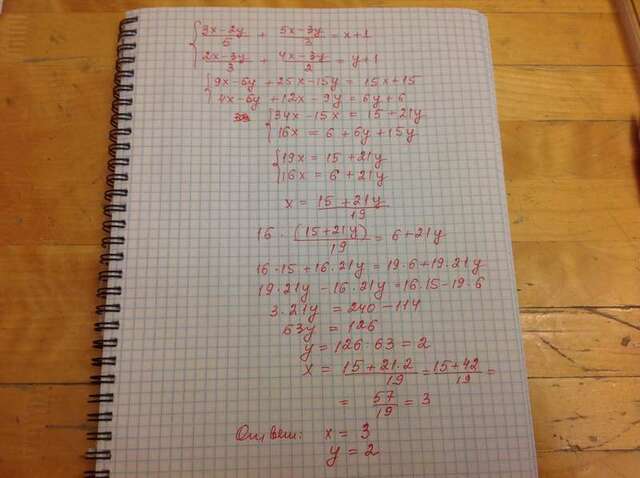 { (3x-2y)/5 + (5x-3y)/3 = x+1
{ (2x-3y)/3 + (4x-3y)/2 = y+1
{ 9x-6y + 25x-15y = 15x+15
{ 4x-6y + 12x-9y = 6y+6
{ 34x-15x = 15+21y
{ 16x = 6+6y+15y
{ 19x = 15+21y
{ 16x = 6+21y
x = (15+21y)/19
16 · (15+21y)/19 = 6+21y
16·15+16·21y = 19·6+19·21y
19·21y-16·21y = 16·15-19·6
3·21y = 240-114
63y = 126
y = 126:63 = 2
x = (15+21·2)/19 = (15+42)/19 =
= 57/19 = 3
Ответ: x = 3
y = 2